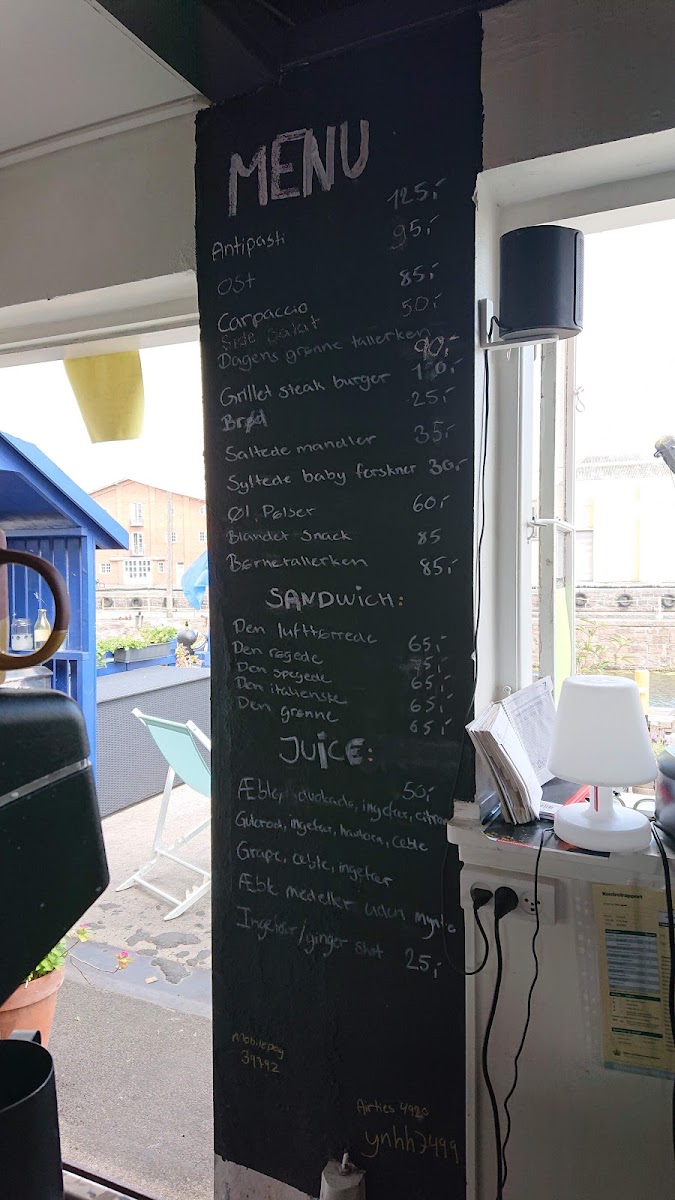 MENU
Antipasti 125,-
Ost 95,-
Carpaccio 85,-
Side Salat 50,-
Dagens grønne tallerken 90,-
Grillet steak burger
Brød 25,-
Saltede mandler 35,-
Syltede baby ferskner 30,-
Øl Pølser 60,-
Blandet Snack 85
Børnetallerken 85,-
SANDWICH:
Den lufttørrede 65,-
Den røgede
Den spegede 65,-
Den italienske 65,-
Den grønne 65,-
JUICE:
Æble, avokado, ingefær, citron 50,-
Gulerod, ingefær, æble
Grape, æble, ingefær
Æble med eller uden mynte
Ingefær/ginger shot 25,-
Mobilepay
39792
Airties 4920
ynhh7499